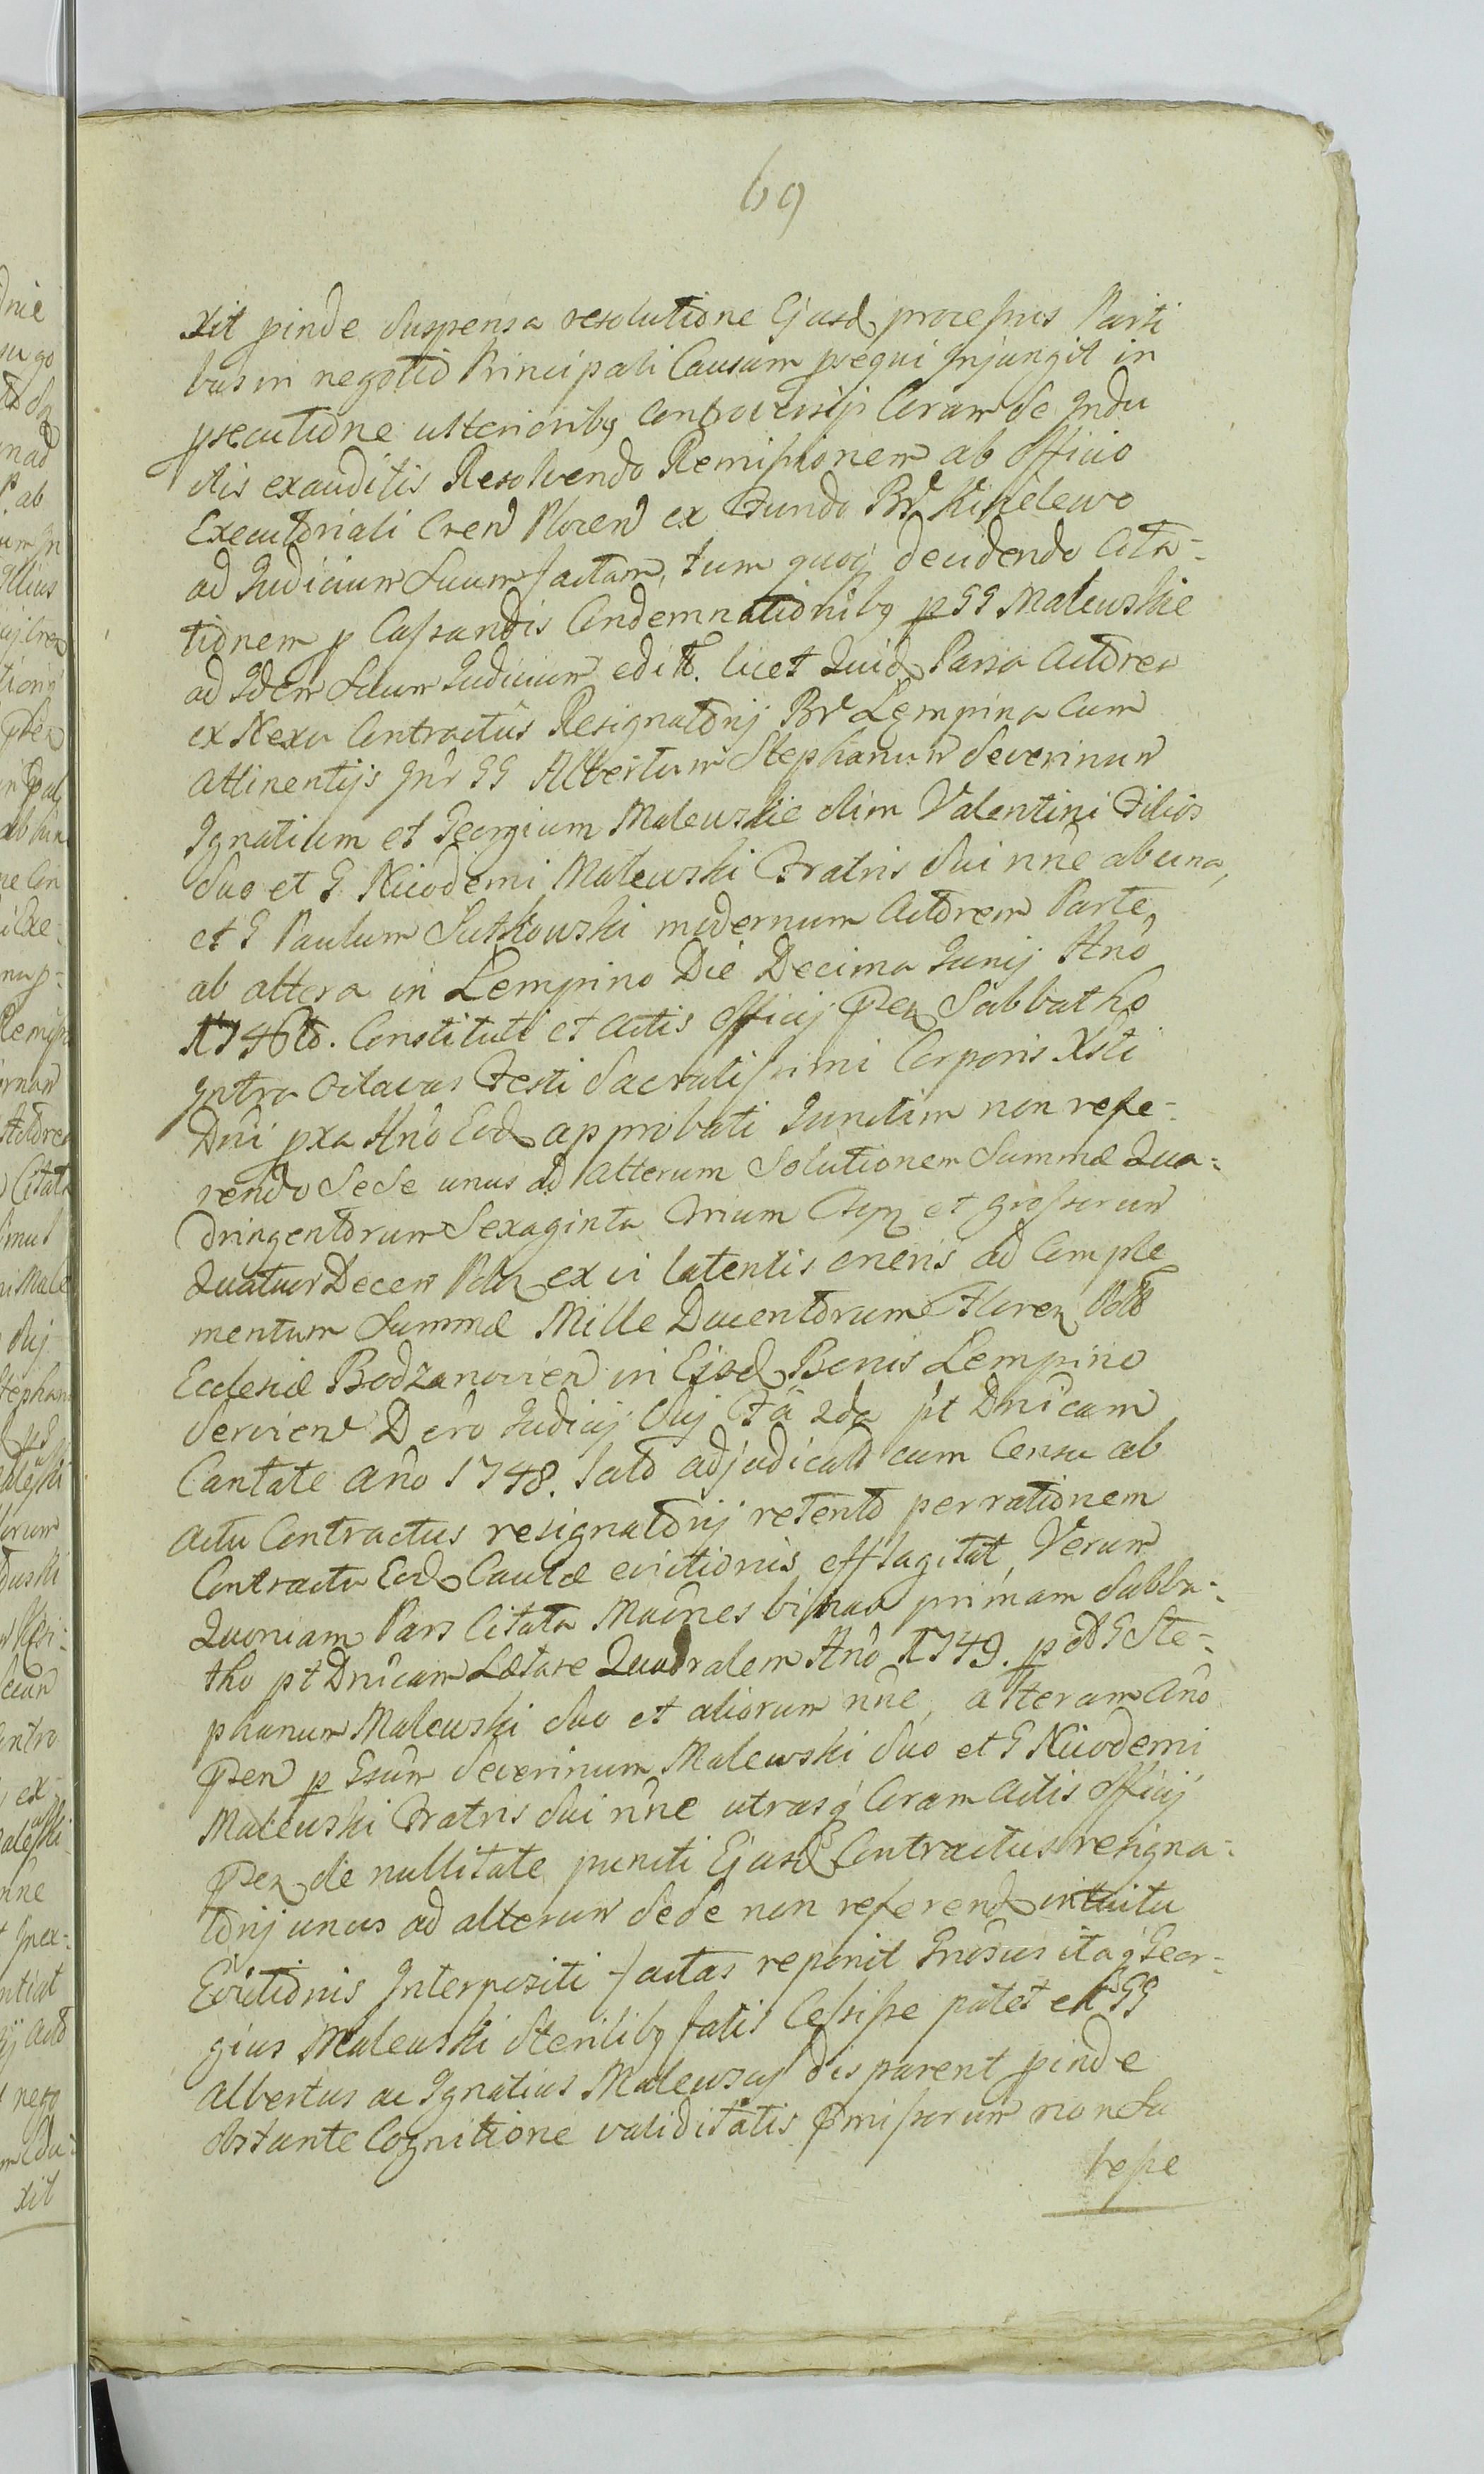 69
xit pinde suspensa resolutione Ejusd processus Parti
bus in negotio Principali Causam psequi Injungit in
psecutione ulterioribq Controversijs Coram se Indu
ctis exauditis Resolvendo Remissionem ab Officio
Executoriali Cren Plocen ex Fundo Br Kiselewo
ad Judicium Suum factam, tum quoq decidendo Cita-
tionem p Cassandis Condemnationibq p GG Malewskie
ad Idem Suum Judicium edit. licet Quid Parsa Actorea
ex Nexu Contractus Resignatorij Br Lempina Cum
Attinentijs Inr GG Albertum Stephanum Severinum
Ignatium et Georgium Malewskie olim Valentini Filios
Suo et G Nicodemi Malewski Fratris Sui nne ab una,
et G Paulum Sutkowski modernum Actorem Parte
ab altera in Lempino Die Decima Junij Ano
1746to. Constituti et Actis Officij Psen Sabbatho
Intra Octavas Festi Sacratissimi Corporis Xsti
Dni pxa Ano Eod approbati Junctim non refe-
rendo Se Se unus ad Alterum Solutionem Summæ Qua-
dringentorum Sexaginta Trium Typ et grossorum
Quatuor Decem Pol ex vi latentis oneris ad Comple
mentum Summæ Mille Ducentorum Floren Poll
Ecclesiæ Bodzanovien in Eisd Bonis Lempino
Servien Dcro Judicij Sui Fa 2da pt Dnicam
Cantate Ano 1748. lato adjudicato cum Censu ab
Actu Contractus resignatorij retento per rationem
Contractu Eod Cautæ evictionis efflagitat, Verum
Quoniam Pars Citata Maônes binas primam Sabba-
tho pt Dnicam Lætare Quadralem Ano 1749. p G Ste-
phanum Malewski Suo et aliorum nne, alteram Ano
Psen p Gsum Severinum Malewski Suo et G Nicodemi
Malewski Fratris Sui nne utrasq Coram Actis Officij
Psen de nullitate puncti Ejusd Contractus resigna-
torij unus ad alterum Se Se non referend intuitu
Evictionis Interpositi factas reponit Gnosus itaq Geor-
gius Malewski Sterilibq fatis Cessisse patet et GG
Albertus ac Ignatius Malewscy dis parent pinde
Obstante Cognitione validitatis Pmissorum non su
besse